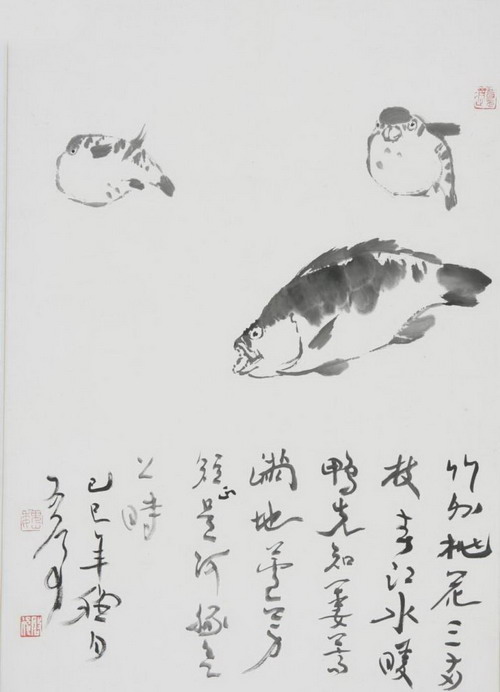 竹外桃花三两
枝春江水暖
鴨先知蔞蒿
满地蘆芽
短正是河豚欲
上時
己巳年穐月